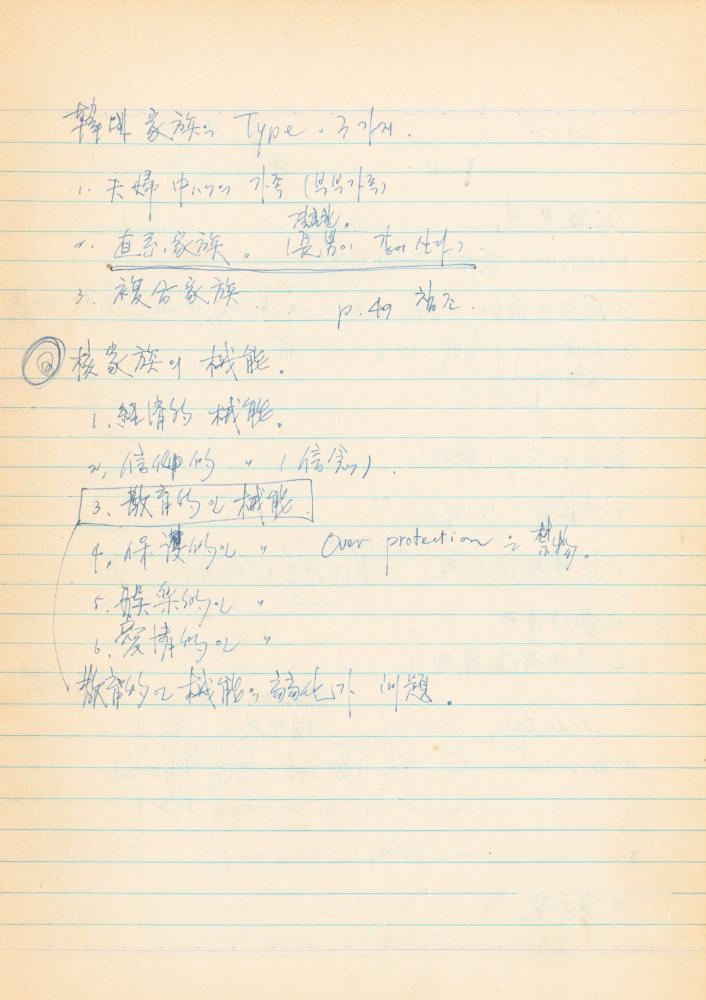 韓国 家族의 Type. 3가지.
1. 夫婦 中心의 가족 (부부가족)
2. 直系家族. (長男이 같이 산다).
3. 複合家族 p.49 참조.
核家族의 械能.
1. 経済的 械能.
2. 信仰的 〃 (信念).
3. 敎育的인 械能.
4. 保護的인 〃 Over protection 는 禁物.
5. 娯楽的인 〃
6. 愛情的인 〃
敎育的인 械能의 弱化가 問題.